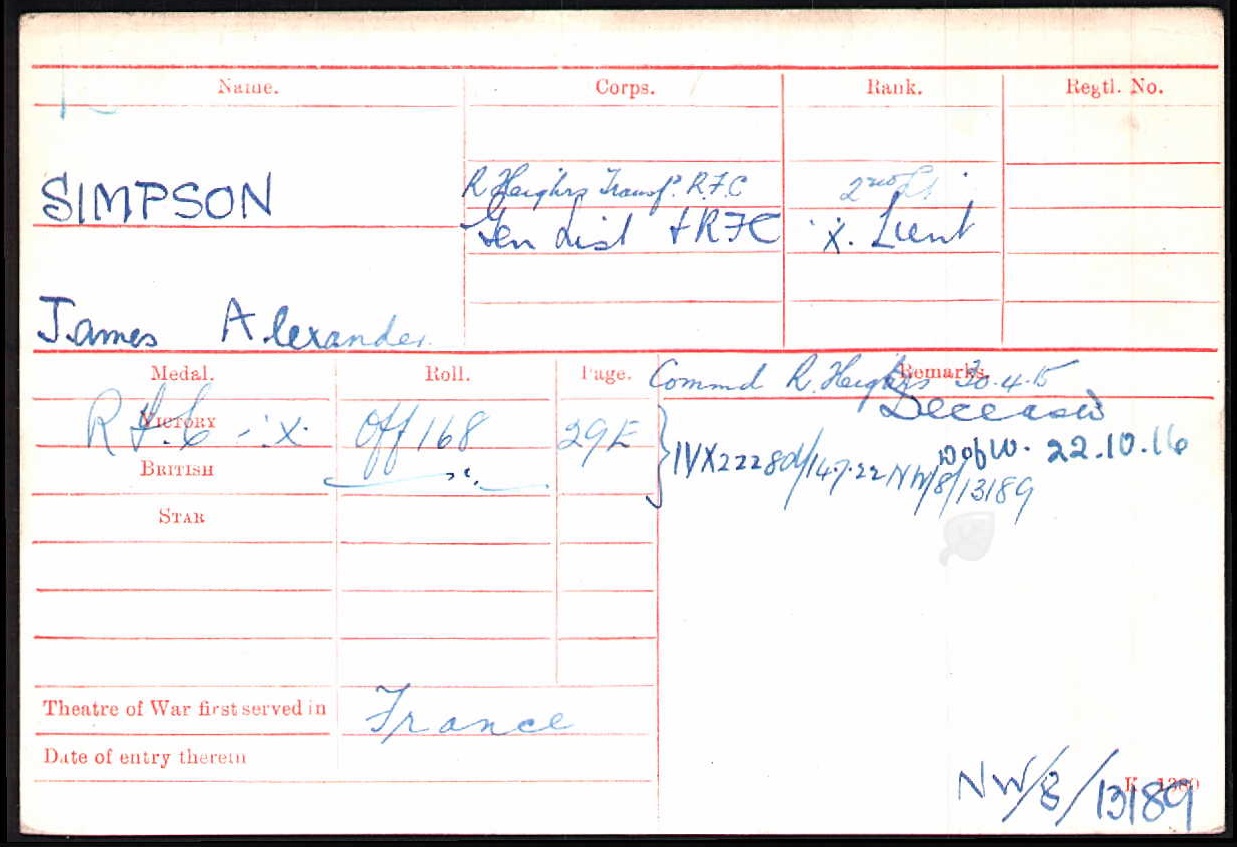 Name. Corps. Rank. Regtl. No.
SIMPSON
R Heighrs Transf. R.F.C 2nd Lt
Gen List & RFC X. Lieut
James Alexander
Medal. Roll. Page. Remarks.
Commd R. Heighrs 30.4.15
Deceased
VICTORY
R F.C -:X. Off 168 29E
DofW. 22.10.16
BRITISH
IVX2228d/14.7.22 NW/8/13189
STAR
Theatre of War first served in France
Date of entry therein
NW/8/13189
K. 1380